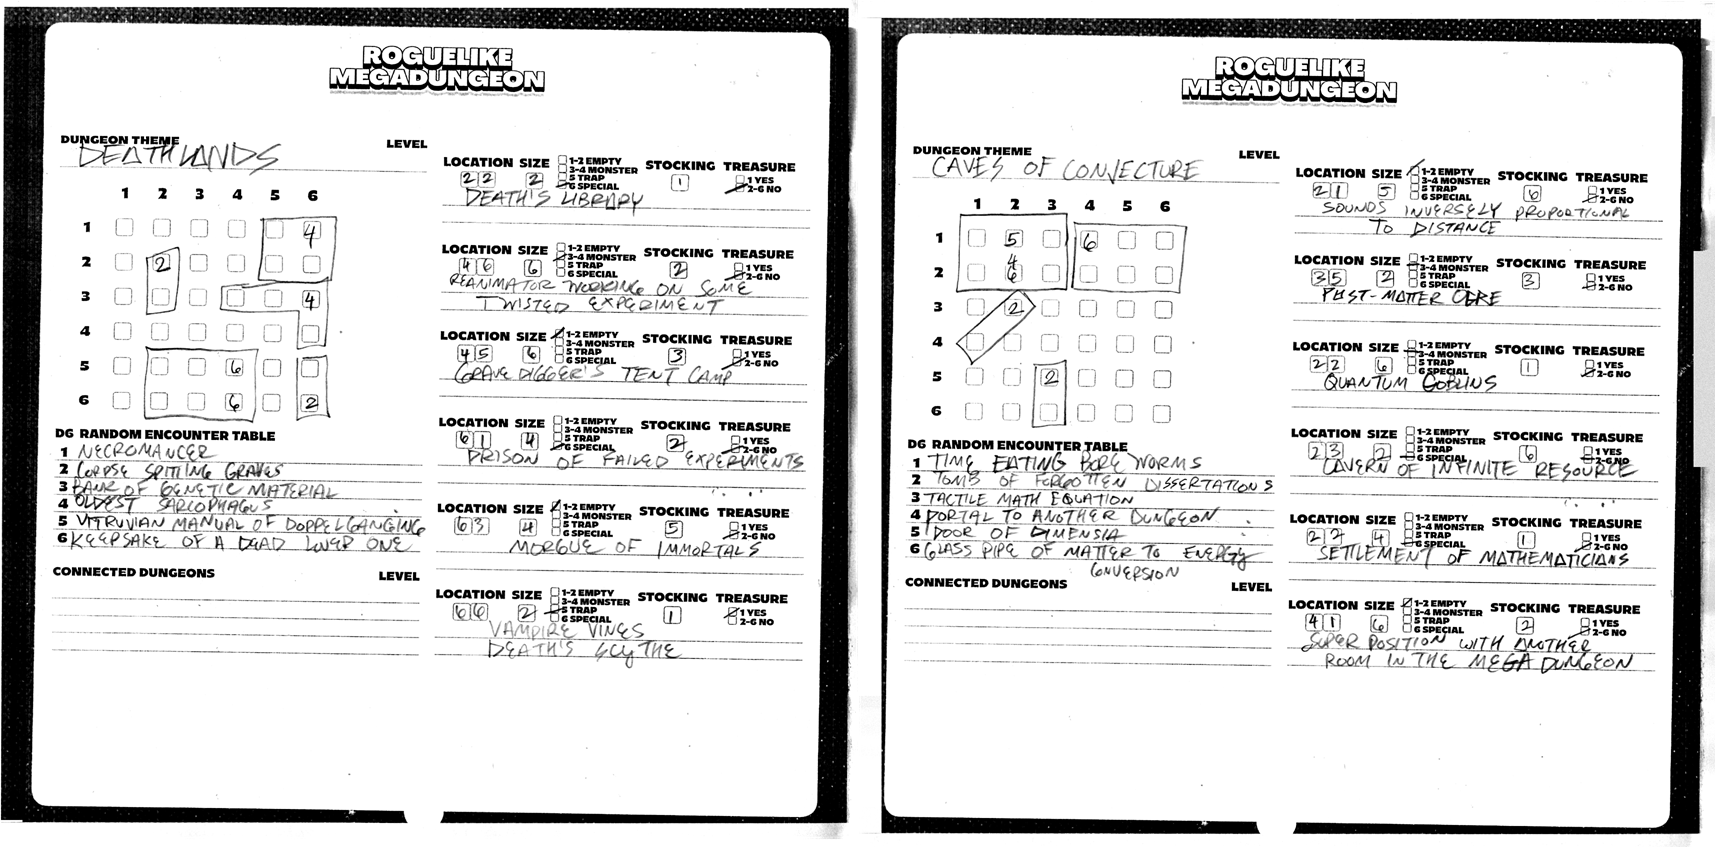 ROGUELIKE
MEGADUNGEON
DUNGEON THEME
LEVEL
DEATHLANDS
1 2 3 4 5 6
1 4
2 2
3 4
4
5 6
6 6 2
DG RANDOM ENCOUNTER TABLE
1 NECROMANCER
2 CORPSE SPITTING GRAVES
3 BANK OF GENETIC MATERIAL
4 OLDEST SARCOPHAGUS
5 VITRUVIAN MANUAL OF DOPPELGANGING
6 KEEPSAKE OF A DEAD LOVED ONE
CONNECTED DUNGEONS LEVEL
LOCATION SIZE 1-2 EMPTY STOCKING TREASURE
3-4 MONSTER
5 TRAP
6 SPECIAL
22 2 1 1 YES
2-6 NO
DEATH'S LIBRARY
LOCATION SIZE 1-2 EMPTY STOCKING TREASURE
3-4 MONSTER
5 TRAP
6 SPECIAL
46 6 2 1 YES
2-6 NO
REANIMATOR WORKING ON SOME
TWISTED EXPERIMENT
LOCATION SIZE 1-2 EMPTY STOCKING TREASURE
3-4 MONSTER
5 TRAP
6 SPECIAL
45 6 3 1 YES
2-6 NO
GRAVE DIGGER'S TENT CAMP
LOCATION SIZE 1-2 EMPTY STOCKING TREASURE
3-4 MONSTER
5 TRAP
6 SPECIAL
61 4 2 1 YES
2-6 NO
PRISON OF FAILED EXPERIMENTS
LOCATION SIZE 1-2 EMPTY STOCKING TREASURE
3-4 MONSTER
5 TRAP
6 SPECIAL
63 4 5 1 YES
2-6 NO
MORGUE OF IMMORTALS
LOCATION SIZE 1-2 EMPTY STOCKING TREASURE
3-4 MONSTER
5 TRAP
6 SPECIAL
66 2 1 1 YES
2-6 NO
VAMPIRE VINES
DEATH'S SCYTHE
ROGUELIKE
MEGADUNGEON
DUNGEON THEME
LEVEL
CAVES OF CONJECTURE
1 2 3 4 5 6
1 5 6
4
2 6
3 2
4
5 2
6
DG RANDOM ENCOUNTER TABLE
1 TIME EATING BORE WORMS
2 TOMB OF FORGOTTEN DISSERTATIONS
3 TACTILE MATH EQUATION
4 PORTAL TO ANOTHER DUNGEON
5 DOOR OF DIMENSIA
6 GLASS PIPE OF MATTER TO ENERGY
CONVERSION
CONNECTED DUNGEONS LEVEL
LOCATION SIZE 1-2 EMPTY STOCKING TREASURE
3-4 MONSTER
5 TRAP
6 SPECIAL
21 5 6 1 YES
2-6 NO
SOUNDS INVERSELY PROPORTIONAL
TO DISTANCE
LOCATION SIZE 1-2 EMPTY STOCKING TREASURE
3-4 MONSTER
5 TRAP
6 SPECIAL
35 2 3 1 YES
2-6 NO
POST-MATTER OGRE
LOCATION SIZE 1-2 EMPTY STOCKING TREASURE
3-4 MONSTER
5 TRAP
6 SPECIAL
22 6 1 1 YES
2-6 NO
QUANTUM GOBLINS
LOCATION SIZE 1-2 EMPTY STOCKING TREASURE
3-4 MONSTER
5 TRAP
6 SPECIAL
23 2 6 1 YES
2-6 NO
CAVERN OF INFINITE RESOURCE
LOCATION SIZE 1-2 EMPTY STOCKING TREASURE
3-4 MONSTER
5 TRAP
6 SPECIAL
22 4 1 1 YES
2-6 NO
SETTLEMENT OF MATHEMATICIANS
LOCATION SIZE 1-2 EMPTY STOCKING TREASURE
3-4 MONSTER
5 TRAP
6 SPECIAL
41 6 2 1 YES
2-6 NO
SUPER POSITION WITH ANOTHER
ROOM IN THE MEGADUNGEON